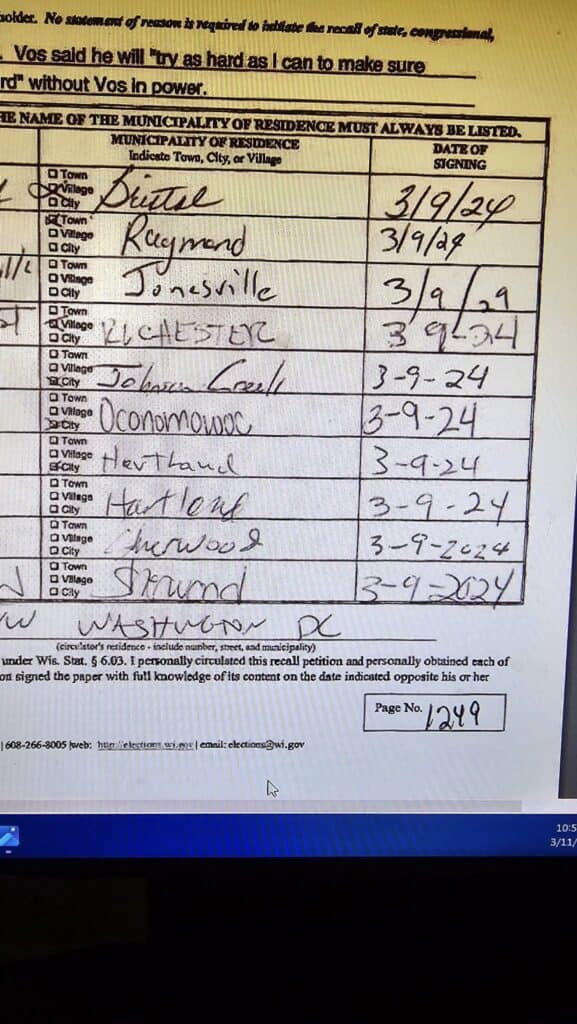 holder. No statement of reason is required to initiate the recall of state, congressional,
. Vos said he will "try as hard as I can to make sure
rd" without Vos in power.
HE NAME OF THE MUNICIPALITY OF RESIDENCE MUST ALWAYS BE LISTED.
MUNICIPALITY OF RESIDENCE
Indicate Town, City, or Village
DATE OF
SIGNING
Town
Village
City
Bristol
3/9/24
Town
Village
City
Raymond
3/9/24
Town
Village
City
Jonesville
3/9/29
Town
Village
City
3 9-24
Town
Village
City
Johnson Creek
3-9-24
Town
Village
City
Oconomowoc
3-9-24
Town
Village
City
Hartland
3-9-24
Town
Village
City
Hartland
3-9-24
Town
Village
City
Sherwood
3-9-2024
Town
Village
City
3-9-2024
WASHINGTON DC
(circulator's residence - include number, street, and municipality)
under Wis. Stat. § 6.03. I personally circulated this recall petition and personally obtained each of
on signed the paper with full knowledge of its content on the date indicated opposite his or her
Page No. 1249
| 608-266-8005 |web: http://elections.wi.gov | email: elections@wi.gov
10:5
3/11/